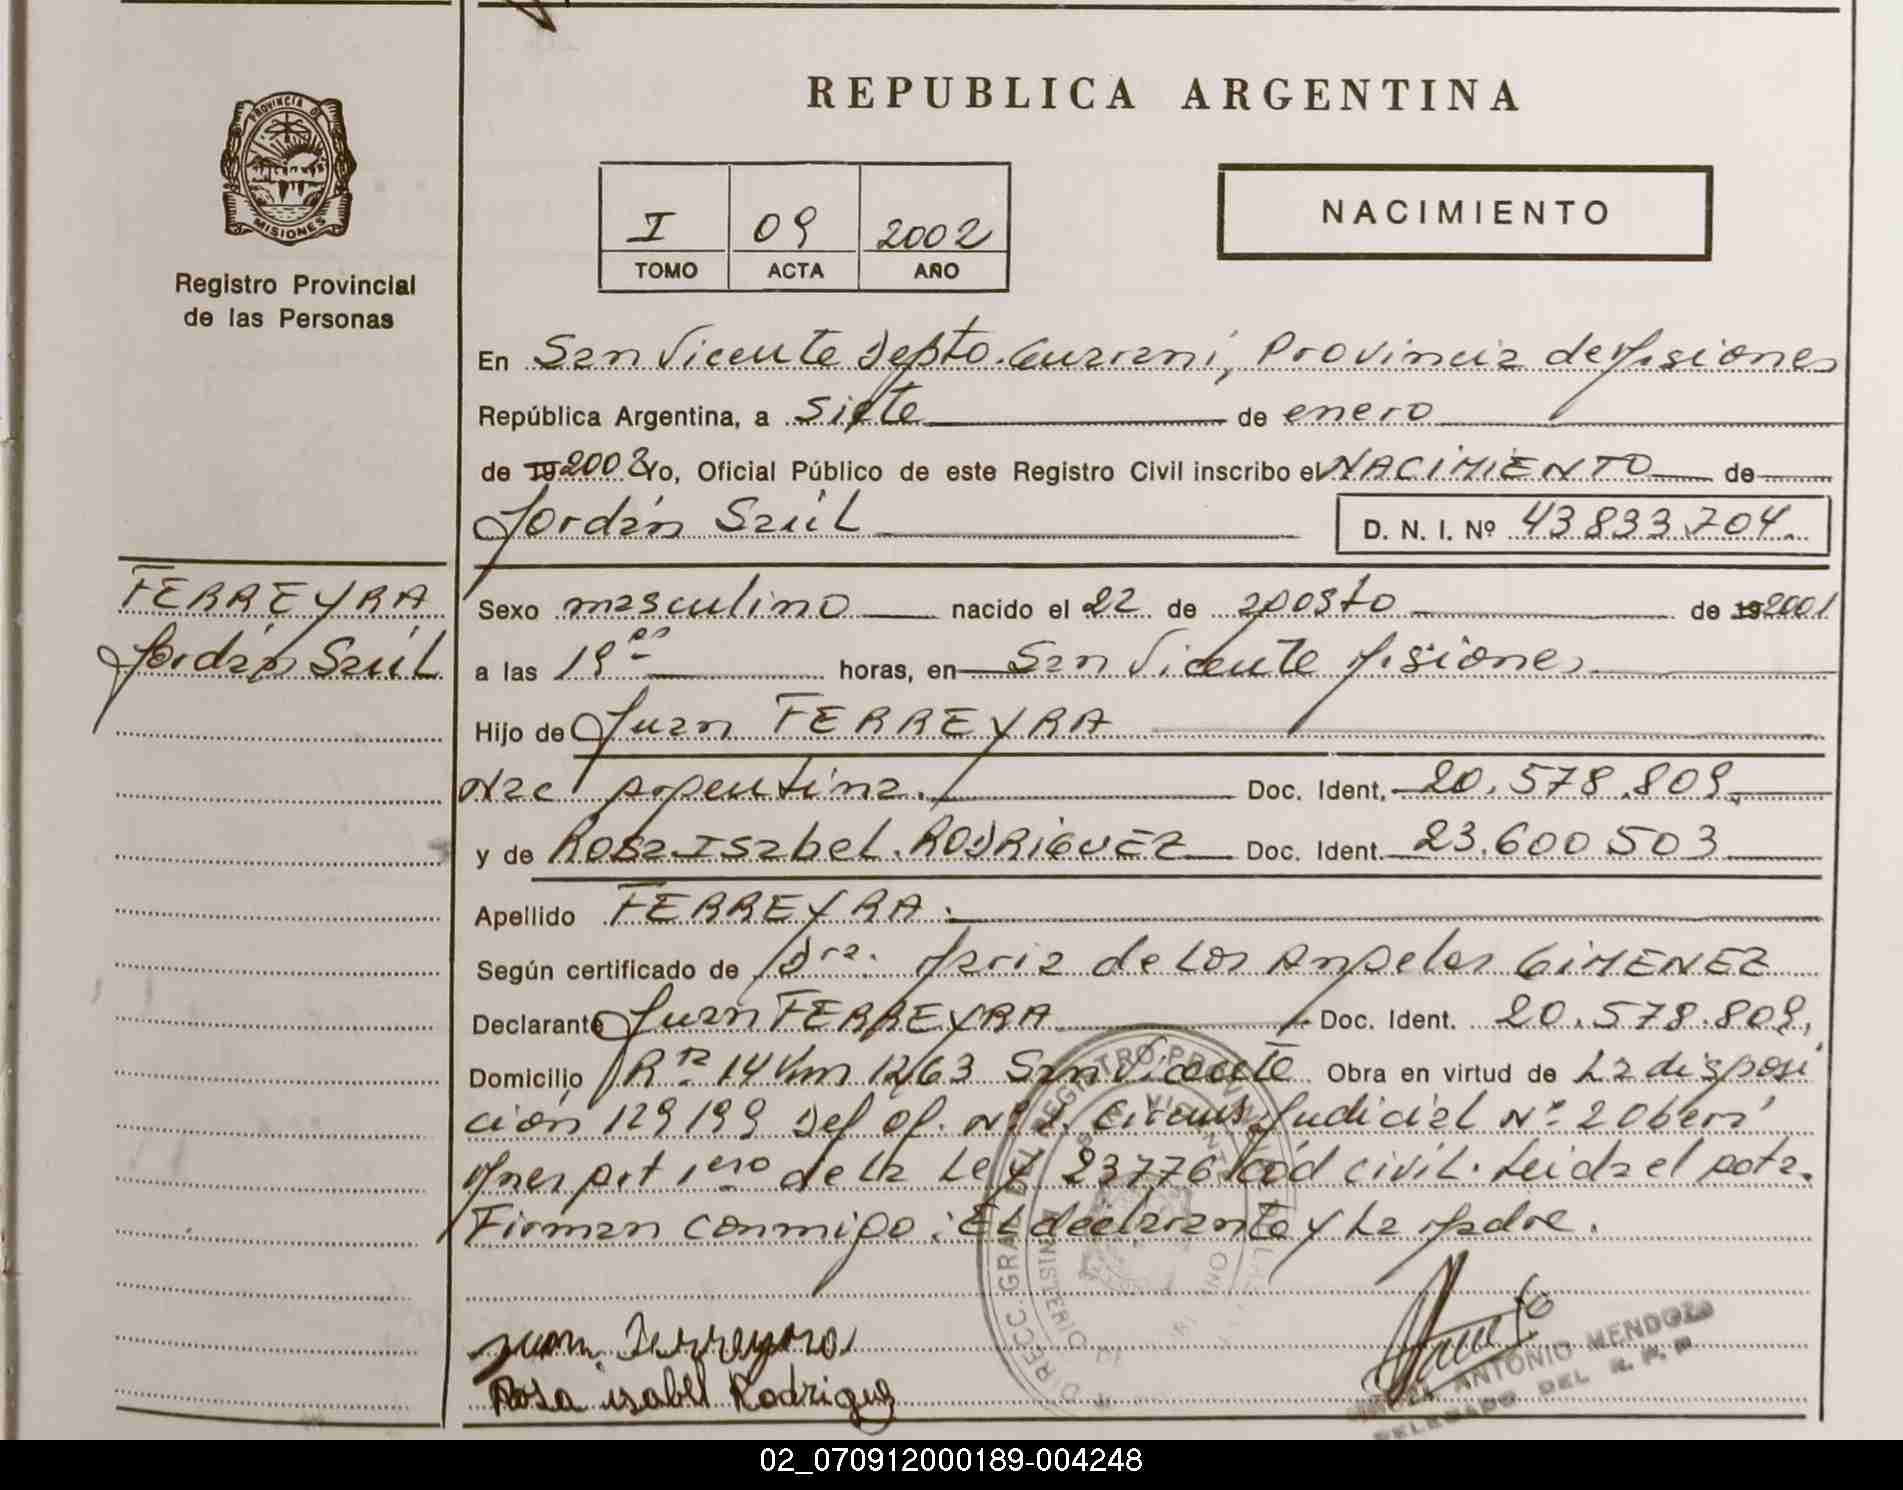 REPUBLICA ARGENTINA
PROVINCIA DE
MISIONES
Registro Provincial
de las Personas
I 09 2002
TOMO ACTA AÑO
NACIMIENTO
En San Vicente Depto. Guarani, Provincia de Misiones
República Argentina, a siete de enero
de 19 2002 Yo, Oficial Público de este Registro Civil inscribo el NACIMIENTO de
Jordán Saúl D. N. I. Nº 43833704.
FERREYRA
Jordán Saúl
Sexo masculino nacido el 22 de agosto de 19 2001
a las 19 horas, en San Vicente Misiones
Hijo de Juan FERREYRA
Nac Argentina. Doc. Ident. 20.578.809.
y de Rosa Isabel RODRIGUEZ Doc. Ident. 23.600503
Apellido FERREYRA.
Según certificado de Dra. Maria de Los Angeles GIMENEZ
Declarante Juan FERREYRA Doc. Ident. 20.578.809,
Domicilio Rta 14 Km 1263 San Vicente Obra en virtud de La disposi
ción 129199 Def of. Nº 1. Circuns Judicial Nº 2 Oberá
Mnes Art 1ero de la Ley 23776 Cód civil. Leida el Acta.
Firman conmigo: El declarante y La Madre.
Juan Ferreyra
Rosa isabel Rodriguez
ANTONIO MENDOZA
DELEGADO DEL R. P. P.
02_070912000189-004248